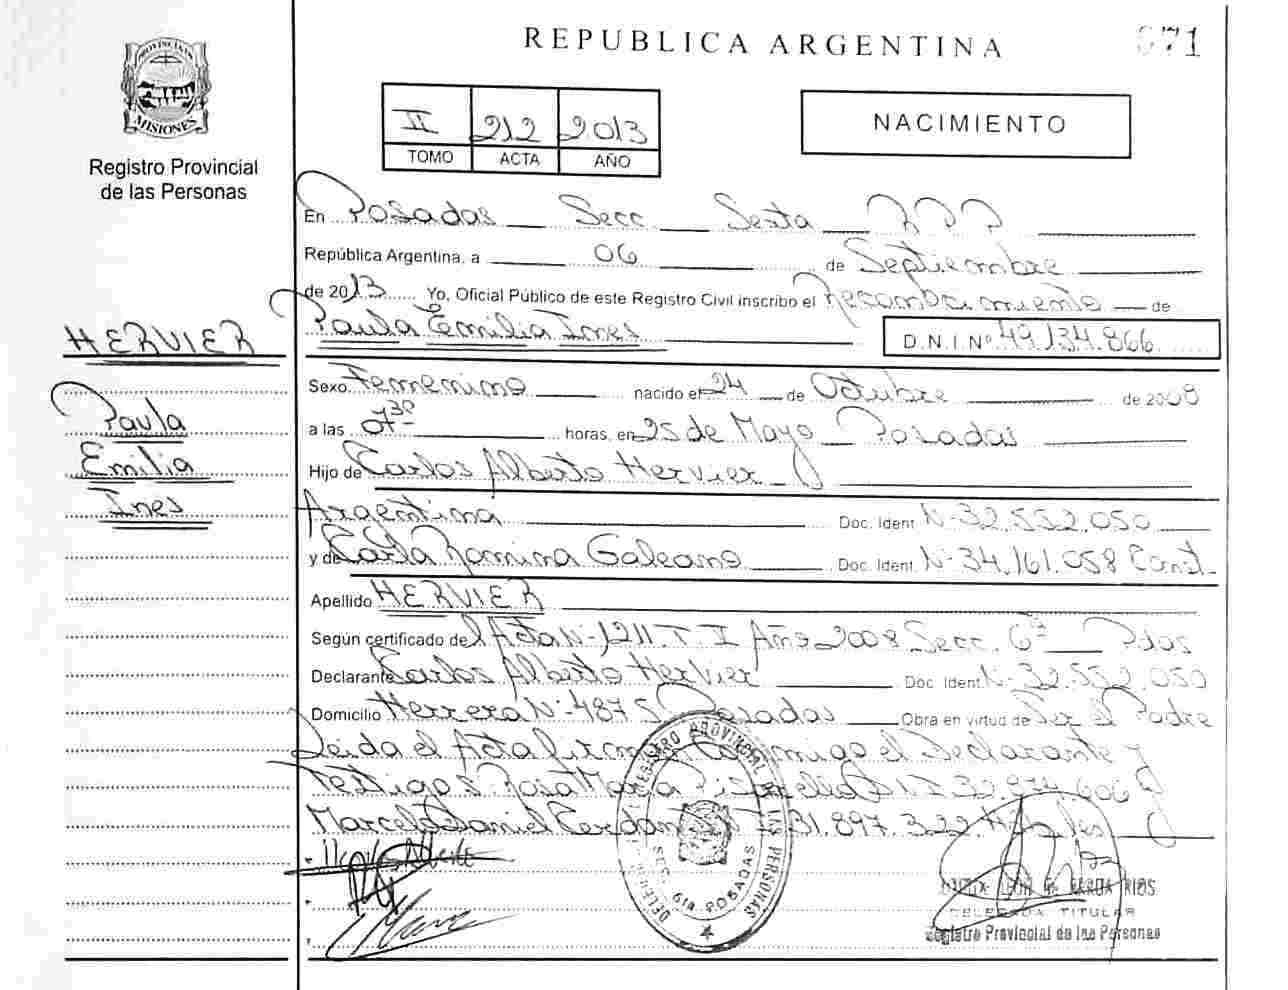 REPUBLICA ARGENTINA
071
PROVINCIA DE MISIONES
Registro Provincial
de las Personas
II 212 2013
TOMO ACTA AÑO
NACIMIENTO
En Posadas Secc Sexta RPP
República Argentina, a 06 de Septiembre
de 2013 Yo, Oficial Público de este Registro Civil inscribo el Reconocimiento de
Paula Emilia Ines D.N.I Nº 49.134.866
HERVIER
Paula
Emilia
Ines
Sexo Femenino nacido el 24 de Octubre de 2008
a las 07 30 horas, en 25 de Mayo Posadas
Hijo de Carlos Alberto Hervier
Argentina Doc. Ident. Nº 32.552.050
y de Carla Romina Galeano Doc. Ident. Nº 34.161.058 Const.
Apellido HERVIER
Según certificado del Acta Nº 1211 T II Año 2008 Secc. 6ª Pdas
Declarante Carlos Alberto Hervier Doc Ident. Nº 32.552.050
Domicilio Herrera Nº 4875 Posadas Obra en virtud de Ser el Padre
Leida el Acta firman Conmigo el Declarante y
Testigos Rosa Maria DNI 32.874.606 y
Marcelo Daniel 31.897.322 Habiles
REGISTRO PROVINCIAL DE LAS PERSONAS
SEC. 6ta POSADAS
DELEGADA TITULAR
Registro Provincial de las Personas